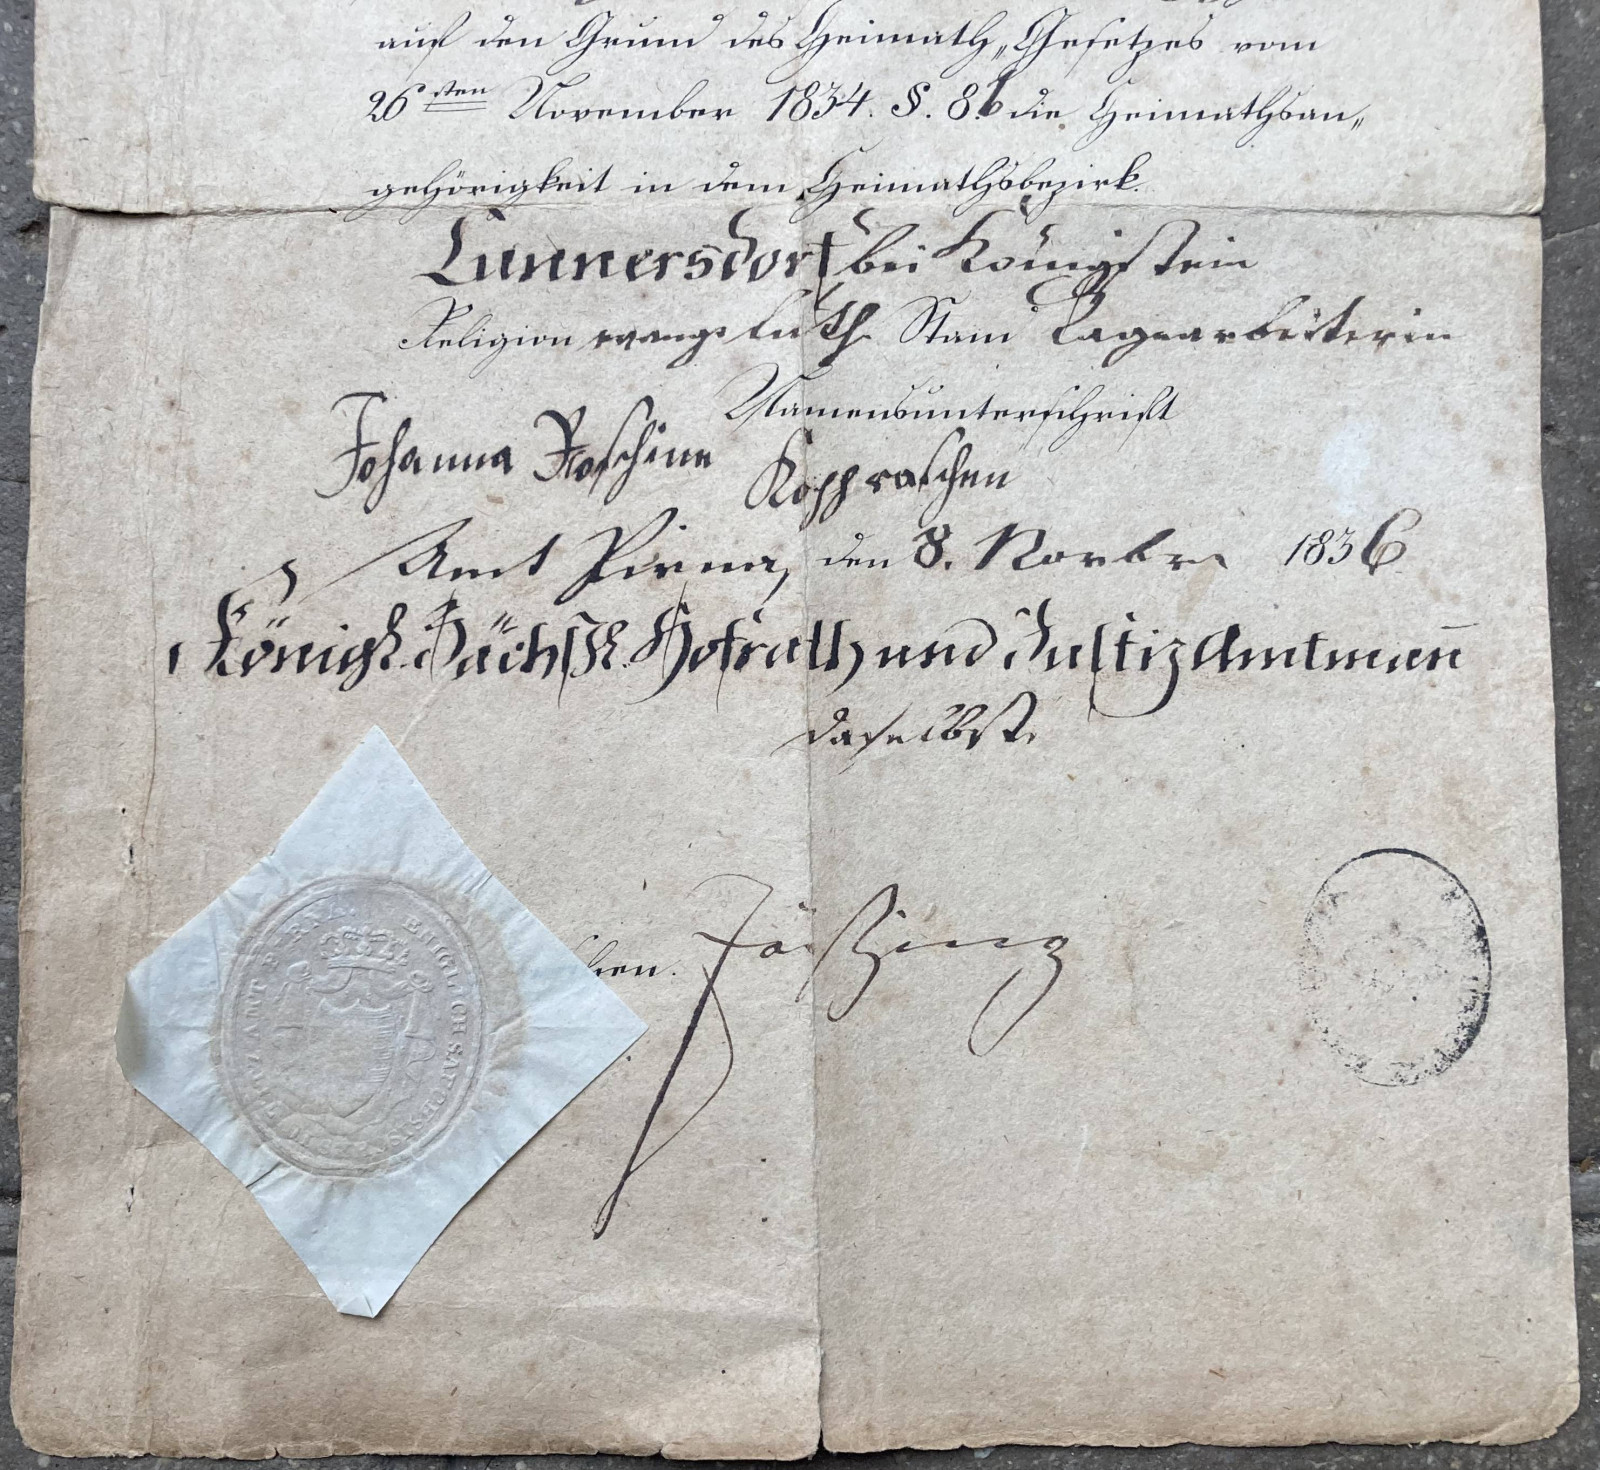 auf den Grund des Heimath„Gesetzes vom
26sten November 1834. §. 8.b die Heimathsan„
gehörigkeit in dem Heimathsbezirk.
Cunnersdorf bei Königstein
Religion evang: luth. Stand Tagearbeiterin
Namensunterschrift
Johanna Roschine Koppraschen
Amt Pirna, den 8. Novbr. 1836.
Königl. Sächß. Hofrath und Justiz Amtmann
daselbst.